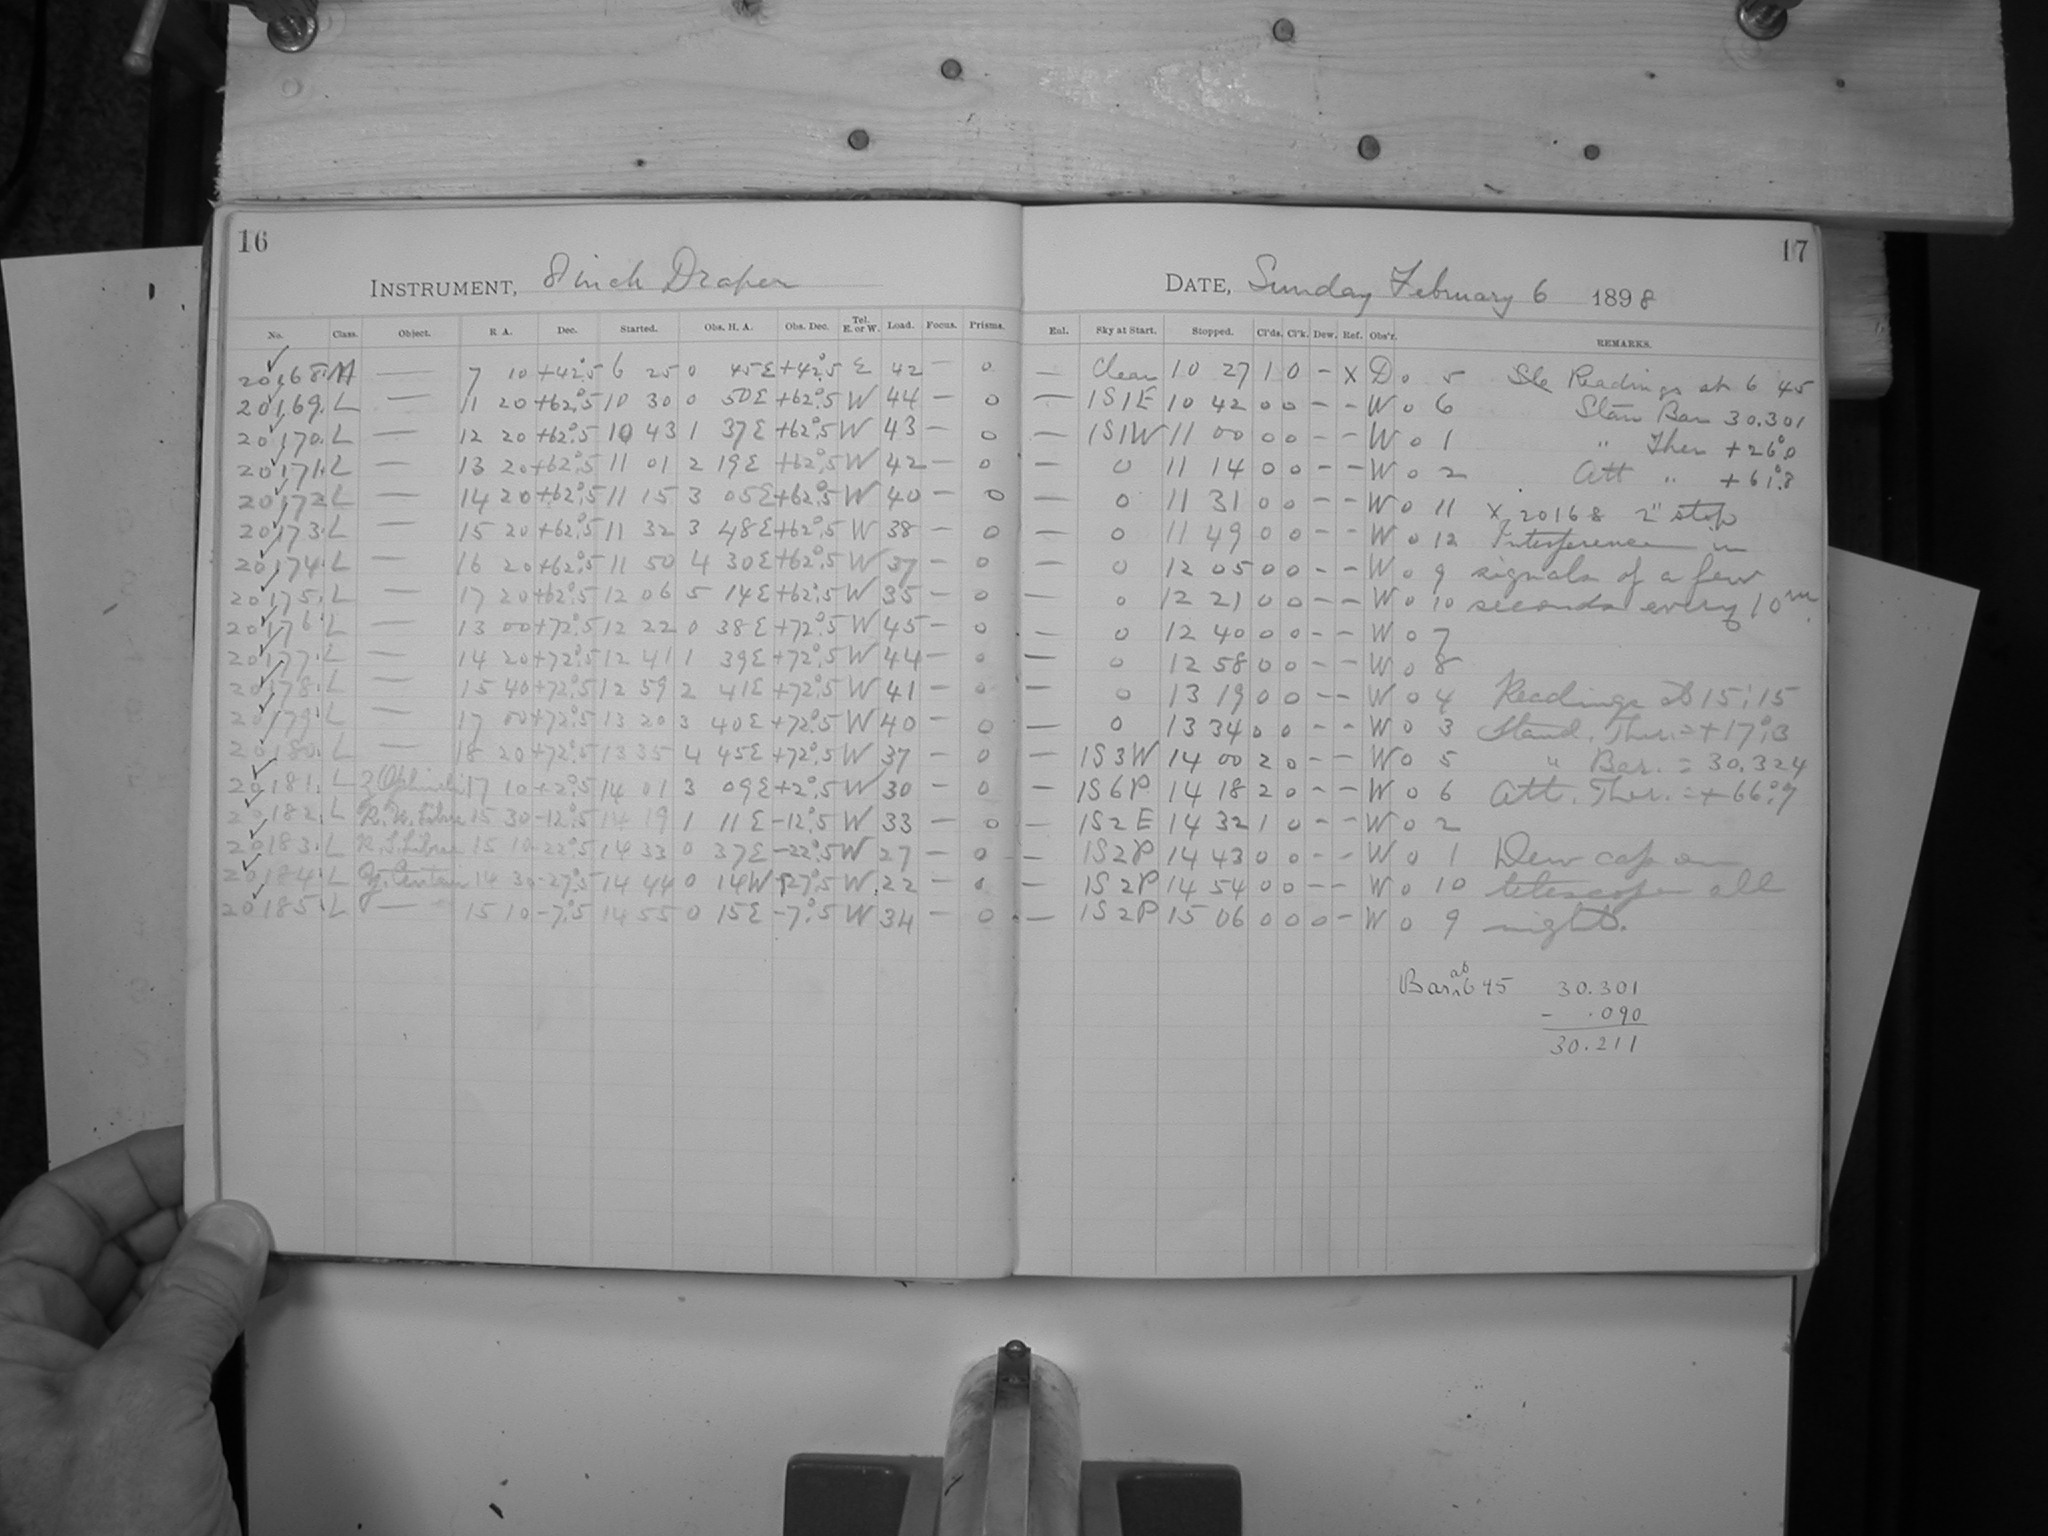 16
INSTRUMENT, 8 inch Draper
No. Class. Object. R. A. Dec. Started. Obs. H. A. Obs. Dec. Tel. E. or W. Load. Focus. Prisms.
20168. — 7 10 +42°.5 6 25 0 45E +42°.5 E 42 — 0
20169. L — 11 20 +62°.5 10 30 0 50E +62°.5 W 44 — 0
20170. L — 12 20 +62°.5 10 43 1 37E +62°.5 W 43 — 0
20171. L — 13 20 +62°.5 11 01 2 19E +62°.5 W 42 — 0
20172. L — 14 20 +62°.5 11 15 3 05E +62°.5 W 40 — 0
20173. L — 15 20 +62°.5 11 32 3 48E +62°.5 W 38 — 0
20174. L — 16 20 +62°.5 11 50 4 30E +62°.5 W 37 — 0
20175. L — 17 20 +62°.5 12 06 5 14E +62°.5 W 35 — 0
20176. L — 13 00 +72°.5 12 22 0 38E +72°.5 W 45 — 0
20177. L — 14 20 +72°.5 12 41 1 39E +72°.5 W 44 — 0
20178. L — 15 40 +72°.5 12 59 2 41E +72°.5 W 41 — 0
20179. L — 17 00 +72°.5 13 20 3 40E +72°.5 W 40 — 0
20180. L — 18 20 +72°.5 13 35 4 45E +72°.5 W 37 — 0
20181. L Z Ophiuchi 17 10 +2°.5 14 01 3 09E +2°.5 W 30 — 0
20182. L R.U. Librae 15 30 -12°.5 14 19 1 11E -12°.5 W 33 — 0
20183. L R.S. Librae 15 10 -22°.5 14 33 0 37E -22°.5 W 27 — 0
20184. L 14 30 -27°.5 14 44 0 14W -27°.5 W 22 — 0
20185. L — 15 10 -7°.5 14 55 0 15E -7°.5 W 34 — 0
17
DATE, Sunday February 6 1898
Enl. Sky at Start. Stopped. Cl'ds. Cl'k. Dew. Ref. Obs'r. REMARKS.
— Clear 10 27 1 0 — X D 0 5 See Readings at 6 45
— 1S1E 10 42 0 0 — — W 0 6 Stan Bar 30.301
— 1S1W 11 00 0 0 — — W 0 1 " Ther +26°.0
— 0 11 14 0 0 — — W 0 2 Att " +61°.8
— 0 11 31 0 0 — — W 0 11 X 20168 2" stop
— 0 11 49 0 0 — — W 0 12 Interference in
— 0 12 05 0 0 — — W 0 9 signals of a few
— 0 12 21 0 0 — — W 0 10 seconds every 10m.
— 0 12 40 0 0 — — W 0 7
— 0 12 58 0 0 — — W 0 8
— 0 13 19 0 0 — — W 0 4 Readings at 15:15
— 0 13 34 0 0 — — W 0 3 Stand. Ther. = +17°.3
— 1S3W 14 00 2 0 — — W 0 5 " Bar. = 30.324
— 1S6P 14 18 2 0 — — W 0 6 Att. Ther. = +66°.9
— 1S2E 14 32 1 0 — — W 0 2
— 1S2P 14 43 0 0 — — W 0 1 Dew cap on
— 1S2P 14 54 0 0 — — W 0 10 telescope all
— 1S2P 15 06 0 0 0 — W 0 9 night.
Bar. at 6 45 30.301
- .090
30.211